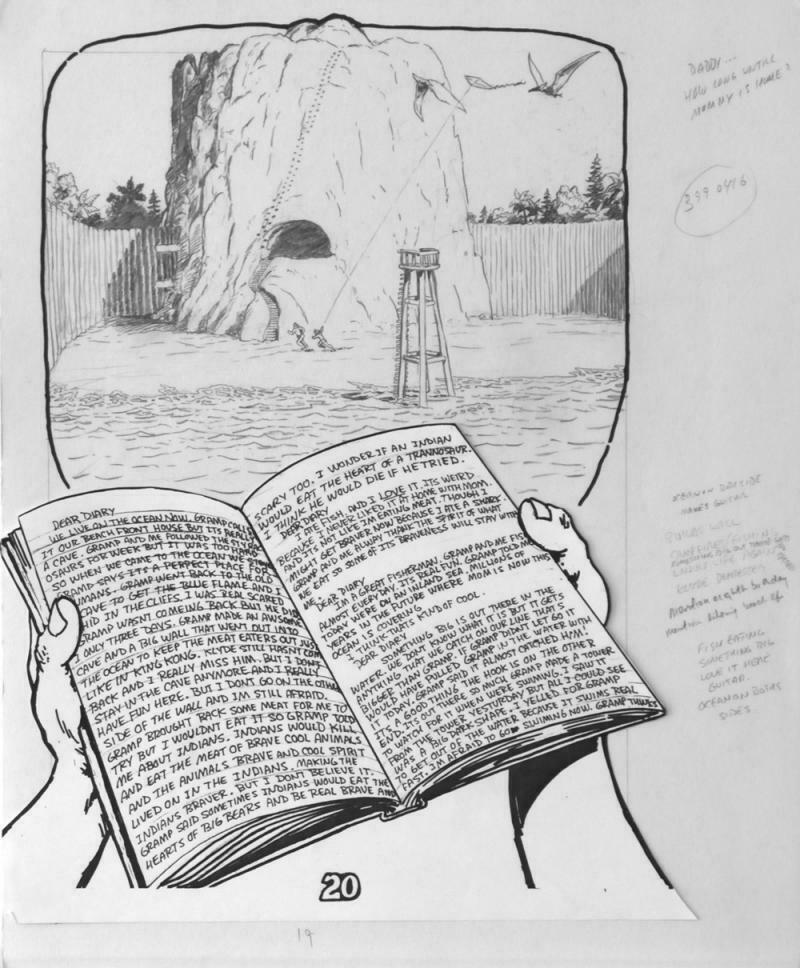 DADDY...
HOW LONG UNTILL
MOMMY IS HOME?
399 0476
DEAR DIARY
WE LIVE ON THE OCEAN NOW. GRAMP CALLS
IT OUR BEACH FRONT HOUSE BUT ITS REALLY
A CAVE. GRAMP AND ME FOLLOWED THE
OSHURS FOR WEEK BUT IT WAS TOO HARD
SO WHEN WE CAME TO THE OCEAN WE
GRAMP SAYS IT'S A PERFECT PLACE FOR
HUMANS. GRAMP WENT BACK TO THE OLD
CAVE TO GET THE BLUE FLAME AND I
HID IN THE CLIFFS. I WAS REAL SCARED
GRAMP WASNT COMEING BACK BUT HE DID
I ONLY THREE DAYS. GRAMP MADE AN AWSOME
CAVE AND A BIG WALL THAT WENT OUT INTO
THE OCEAN TO KEEP THE MEAT EATERS OUT JUST
LIKE IN KING KONG. KLYDE STILL HASNT COME
BACK AND I REALLY MISS HIM. BUT I DON'T
STAY IN THE CAVE ANYMORE AND I REALLY
HAVE FUN HERE. BUT I DON'T GO ON THE OTHER
SIDE OF THE WALL AND IM STILL AFRAID.
GRAMP BROUGHT BACK SOME MEAT FOR ME TO
TRY BUT I WOULDNT EAT IT SO GRAMP TOLD
ME ABOUT INDIANS. INDIANS WOULD KILL
AND EAT THE MEAT OF BRAVE COOL ANIMALS
AND THE ANIMALS BRAVE AND COOL SPIRIT
LIVED ON IN THE INDIANS. MAKING THE
INDIANS BRAVER. BUT I DONT BELIEVE IT.
GRAMP SAID SOMETIMES INDIANS WOULD EAT THE
HEARTS OF BIG BEARS AND BE REAL BRAVE AND
SCARY TOO. I WONDER IF AN INDIAN
WOULD EAT THE HEART OF A TRANNOSAUR.
I THINK HE WOULD DIE IF HE TRIED.
DEAR DIARY
I ATE FISH, AND I LOVE IT. ITS WEIRD
BECAUSE I NEVER LIKED IT AT HOME WITH MOM.
AND ITS NOT LIKE IM EATING MEAT. THOUGH I
MIGHT GET BRAVER NOW BECAUSE I ATE A SHARK.
GRAMP AND ME ALWAY THANK THE SPIRIT OF WHAT
WE EAT SO SOME OF ITS BRAVENESS WILL STAY WITH
ME.
DEAR DIARY
IM A GREAT FISHERMAN. GRAMP AND ME FISH
ALMOST EVERY DAY. ITS REAL FUN. GRAMP TOLD ME
TODAY WE'RE ON AN INLAND SEA. MILLIONS OF
YEARS IN THE FUTURE WHERE MOM IS NOW THIS
OCEAN IS COVERING. I
THINK THATS KIND OF COOL.
DEAR DIARY
SOMETHING BIG IS OUT THERE IN THE
WATER. WE DONT KNOW WHAT IT IS BUT IT GETS
ANYTHING THAT WE CATCH ON OUR LINE THAT'S
BIGGER THAN GRAMP. IF GRAMP DIDNT LET GO IT
WOULD HAVE PULLED GRAMP IN THE WATER WITH
IT TODAY. GRAMP SAID IT ALMOST CATCHED HIM!
IT'S A GOOD THING THE HOOK IS ON THE OTHER
END. ITS OUT THERE SO MUCH GRAMP MADE A TOWER
TO WATCH FOR IT WHEN WERE SWIMING. I SAW IT
FROM THE TOWER YESTURDAY BUT ALL I COULD SEE
WAS A BIG DARK SHAPE. I YELLED FOR GRAMP
TO GET OUT OF THE WATER BECAUSE IT SWIMS REAL
FAST. IM AFRAID TO GO SWIMING NOW. GRAMP THINKS
MAKES GUITAR
FISH EATING
SOMETHING BIG
LOVE IT HERE
GUITAR
OCEAN ON BOTH
SIDES.
20
19